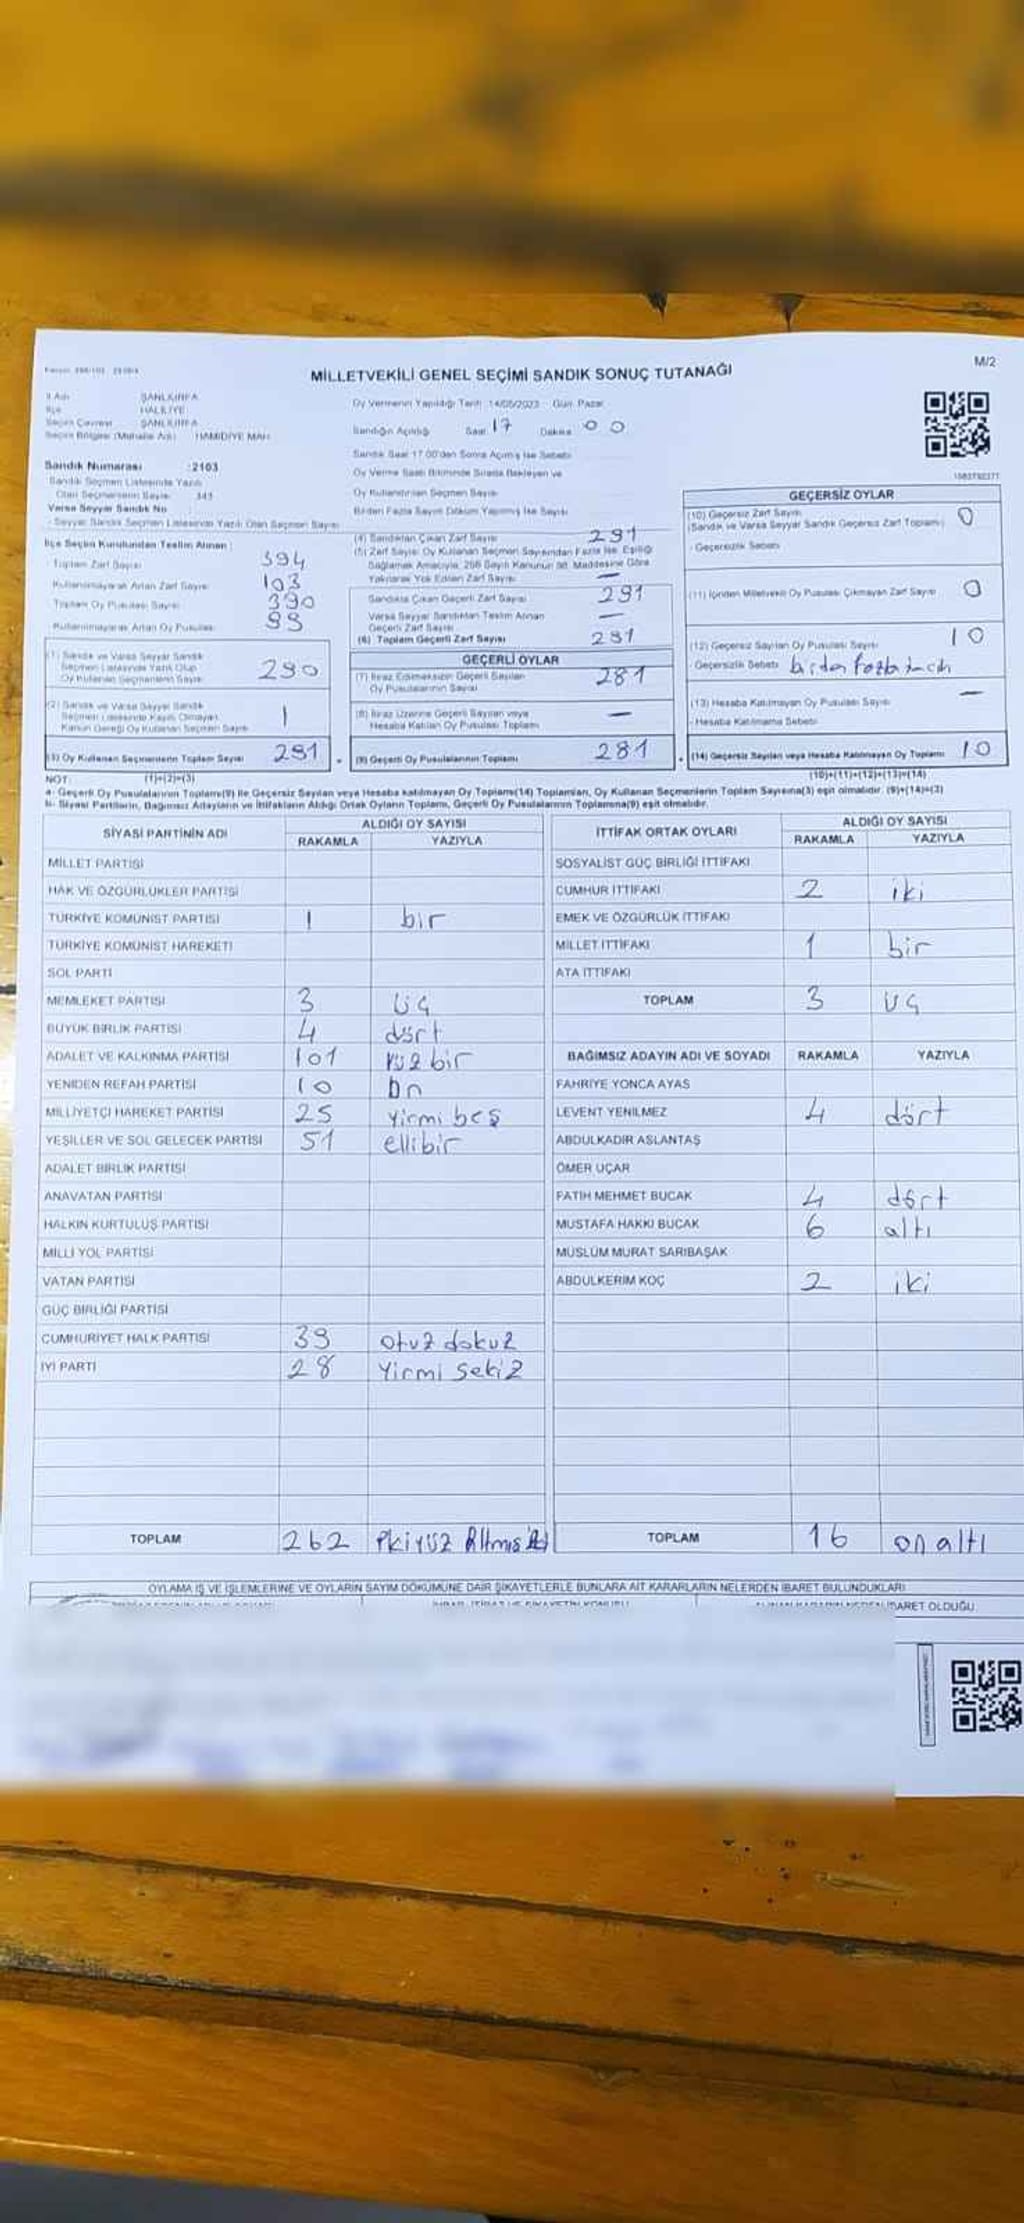 M/2
MİLLETVEKİLİ GENEL SEÇİMİ SANDIK SONUÇ TUTANAĞI
İl Adı ŞANLIURFA
İlçe HALİLİYE
Seçim Çevresi ŞANLIURFA
Seçim Bölgesi (Mahalle Adı) HAMİDİYE MAH.
Sandık Numarası :2103
Sandık Seçmen Listesinde Yazılı
Olan Seçmenlerin Sayısı 343
Varsa Seyyar Sandık No
- Seyyar Sandık Seçmen Listesinde Yazılı Olan Seçmen Sayısı
İlçe Seçim Kurulundan Teslim Alınan :
- Toplam Zarf Sayısı 394
- Kullanılmayarak Artan Zarf Sayısı 103
- Toplam Oy Pusulası Sayısı 390
- Kullanılmayarak Artan Oy Pusulası 99
(1) Sandık ve Varsa Seyyar Sandık
Seçmen Listesinde Yazılı Olup
Oy Kullanan Seçmenlerin Sayısı 290
(2) Sandık ve Varsa Seyyar Sandık
Seçmen Listesinde Kayıtlı Olmayan
Kanun Gereği Oy Kullanan Seçmen Sayısı 1
(3) Oy Kullanan Seçmenlerin Toplam Sayısı 291
Oy Vermenin Yapıldığı Tarih 14/05/2023 Gün Pazar
Sandığın Açıldığı Saat 17 Dakika 00
Sandık Saat 17.00'den Sonra Açılmış İse Sebebi
Oy Verme Saati Bitiminde Sırada Bekleyen ve
Oy Kullandırılan Seçmen Sayısı
Birden Fazla Sayım Döküm Yapılmış İse Sayısı
(4) Sandıktan Çıkan Zarf Sayısı 291
(5) Zarf Sayısı Oy Kullanan Seçmen Sayısından Fazla İse, Eşitliği
Sağlamak Amacıyla, 298 Sayılı Kanunun 98. Maddesine Göre
Yakılarak Yok Edilen Zarf Sayısı —
Sandıkta Çıkan Geçerli Zarf Sayısı 291
Varsa Seyyar Sandıktan Teslim Alınan
Geçerli Zarf Sayısı —
(6) Toplam Geçerli Zarf Sayısı 291
GEÇERLİ OYLAR
(7) İtiraz Edilmeksizin Geçerli Sayılan
Oy Pusulalarının Sayısı 281
(8) İtiraz Üzerine Geçerli Sayılan veya
Hesaba Katılan Oy Pusulası Toplamı —
(9) Geçerli Oy Pusulalarının Toplamı 281
GEÇERSİZ OYLAR
(10) Geçersiz Zarf Sayısı
(Sandık ve Varsa Seyyar Sandık Geçersiz Zarf Toplamı) 0
- Geçersizlik Sebebi
(11) İçinden Milletvekili Oy Pusulası Çıkmayan Zarf Sayısı 0
(12) Geçersiz Sayılan Oy Pusulası Sayısı 10
- Geçersizlik Sebebi
(13) Hesaba Katılmayan Oy Pusulası Sayısı —
- Hesaba Katılmama Sebebi
(14) Geçersiz Sayılan veya Hesaba Katılmayan Oy Toplamı 10
NOT: (1)+(2)=(3)
(10)+(11)+(12)+(13)=(14)
a- Geçerli Oy Pusulalarının Toplamı(9) ile Geçersiz Sayılan veya Hesaba katılmayan Oy Toplamı(14) Toplamları, Oy Kullanan Seçmenlerin Toplam Sayısına(3) eşit olmalıdır. (9)+(14)=(3)
b- Siyasi Partilerin, Bağımsız Adayların ve İttifakların Aldığı Ortak Oyların Toplamı, Geçerli Oy Pusulalarının Toplamına(9) eşit olmalıdır.
SİYASİ PARTİNİN ADI ALDIĞI OY SAYISI
RAKAMLA YAZIYLA
MİLLET PARTİSİ
HAK VE ÖZGÜRLÜKLER PARTİSİ
TÜRKİYE KOMÜNİST PARTİSİ 1 bir
TÜRKİYE KOMÜNİST HAREKETİ
SOL PARTİ
MEMLEKET PARTİSİ 3 üç
BÜYÜK BİRLİK PARTİSİ 4 dört
ADALET VE KALKINMA PARTİSİ 101 yüz bir
YENİDEN REFAH PARTİSİ 10 on
MİLLİYETÇİ HAREKET PARTİSİ 25 yirmi beş
YEŞİLLER VE SOL GELECEK PARTİSİ 51 ellibir
ADALET BİRLİK PARTİSİ
ANAVATAN PARTİSİ
HALKIN KURTULUŞ PARTİSİ
MİLLİ YOL PARTİSİ
VATAN PARTİSİ
GÜÇ BİRLİĞİ PARTİSİ
CUMHURİYET HALK PARTİSİ 39 otuz dokuz
İYİ PARTİ 28 Yirmi sekiz
TOPLAM 262 ikiyüz Altmış iki
İTTİFAK ORTAK OYLARI ALDIĞI OY SAYISI
RAKAMLA YAZIYLA
SOSYALİST GÜÇ BİRLİĞİ İTTİFAKI
CUMHUR İTTİFAKI 2 iki
EMEK VE ÖZGÜRLÜK İTTİFAKI
MİLLET İTTİFAKI 1 bir
ATA İTTİFAKI
TOPLAM 3 üç
BAĞIMSIZ ADAYIN ADI VE SOYADI RAKAMLA YAZIYLA
FAHRİYE YONCA AYAS
LEVENT YENİLMEZ 4 dört
ABDULKADİR ASLANTAŞ
ÖMER UÇAR
FATİH MEHMET BUCAK 4 dört
MUSTAFA HAKKI BUCAK 6 altı
MÜSLÜM MURAT SARIBAŞAK
ABDULKERİM KOÇ 2 iki
TOPLAM 16 on altı
OYLAMA İŞ VE İŞLEMLERİNE VE OYLARIN SAYIM DÖKÜMÜNE DAİR ŞİKAYETLERLE BUNLARA AİT KARARLARIN NELERDEN İBARET BULUNDUKLARI
İBARET OLDUĞU